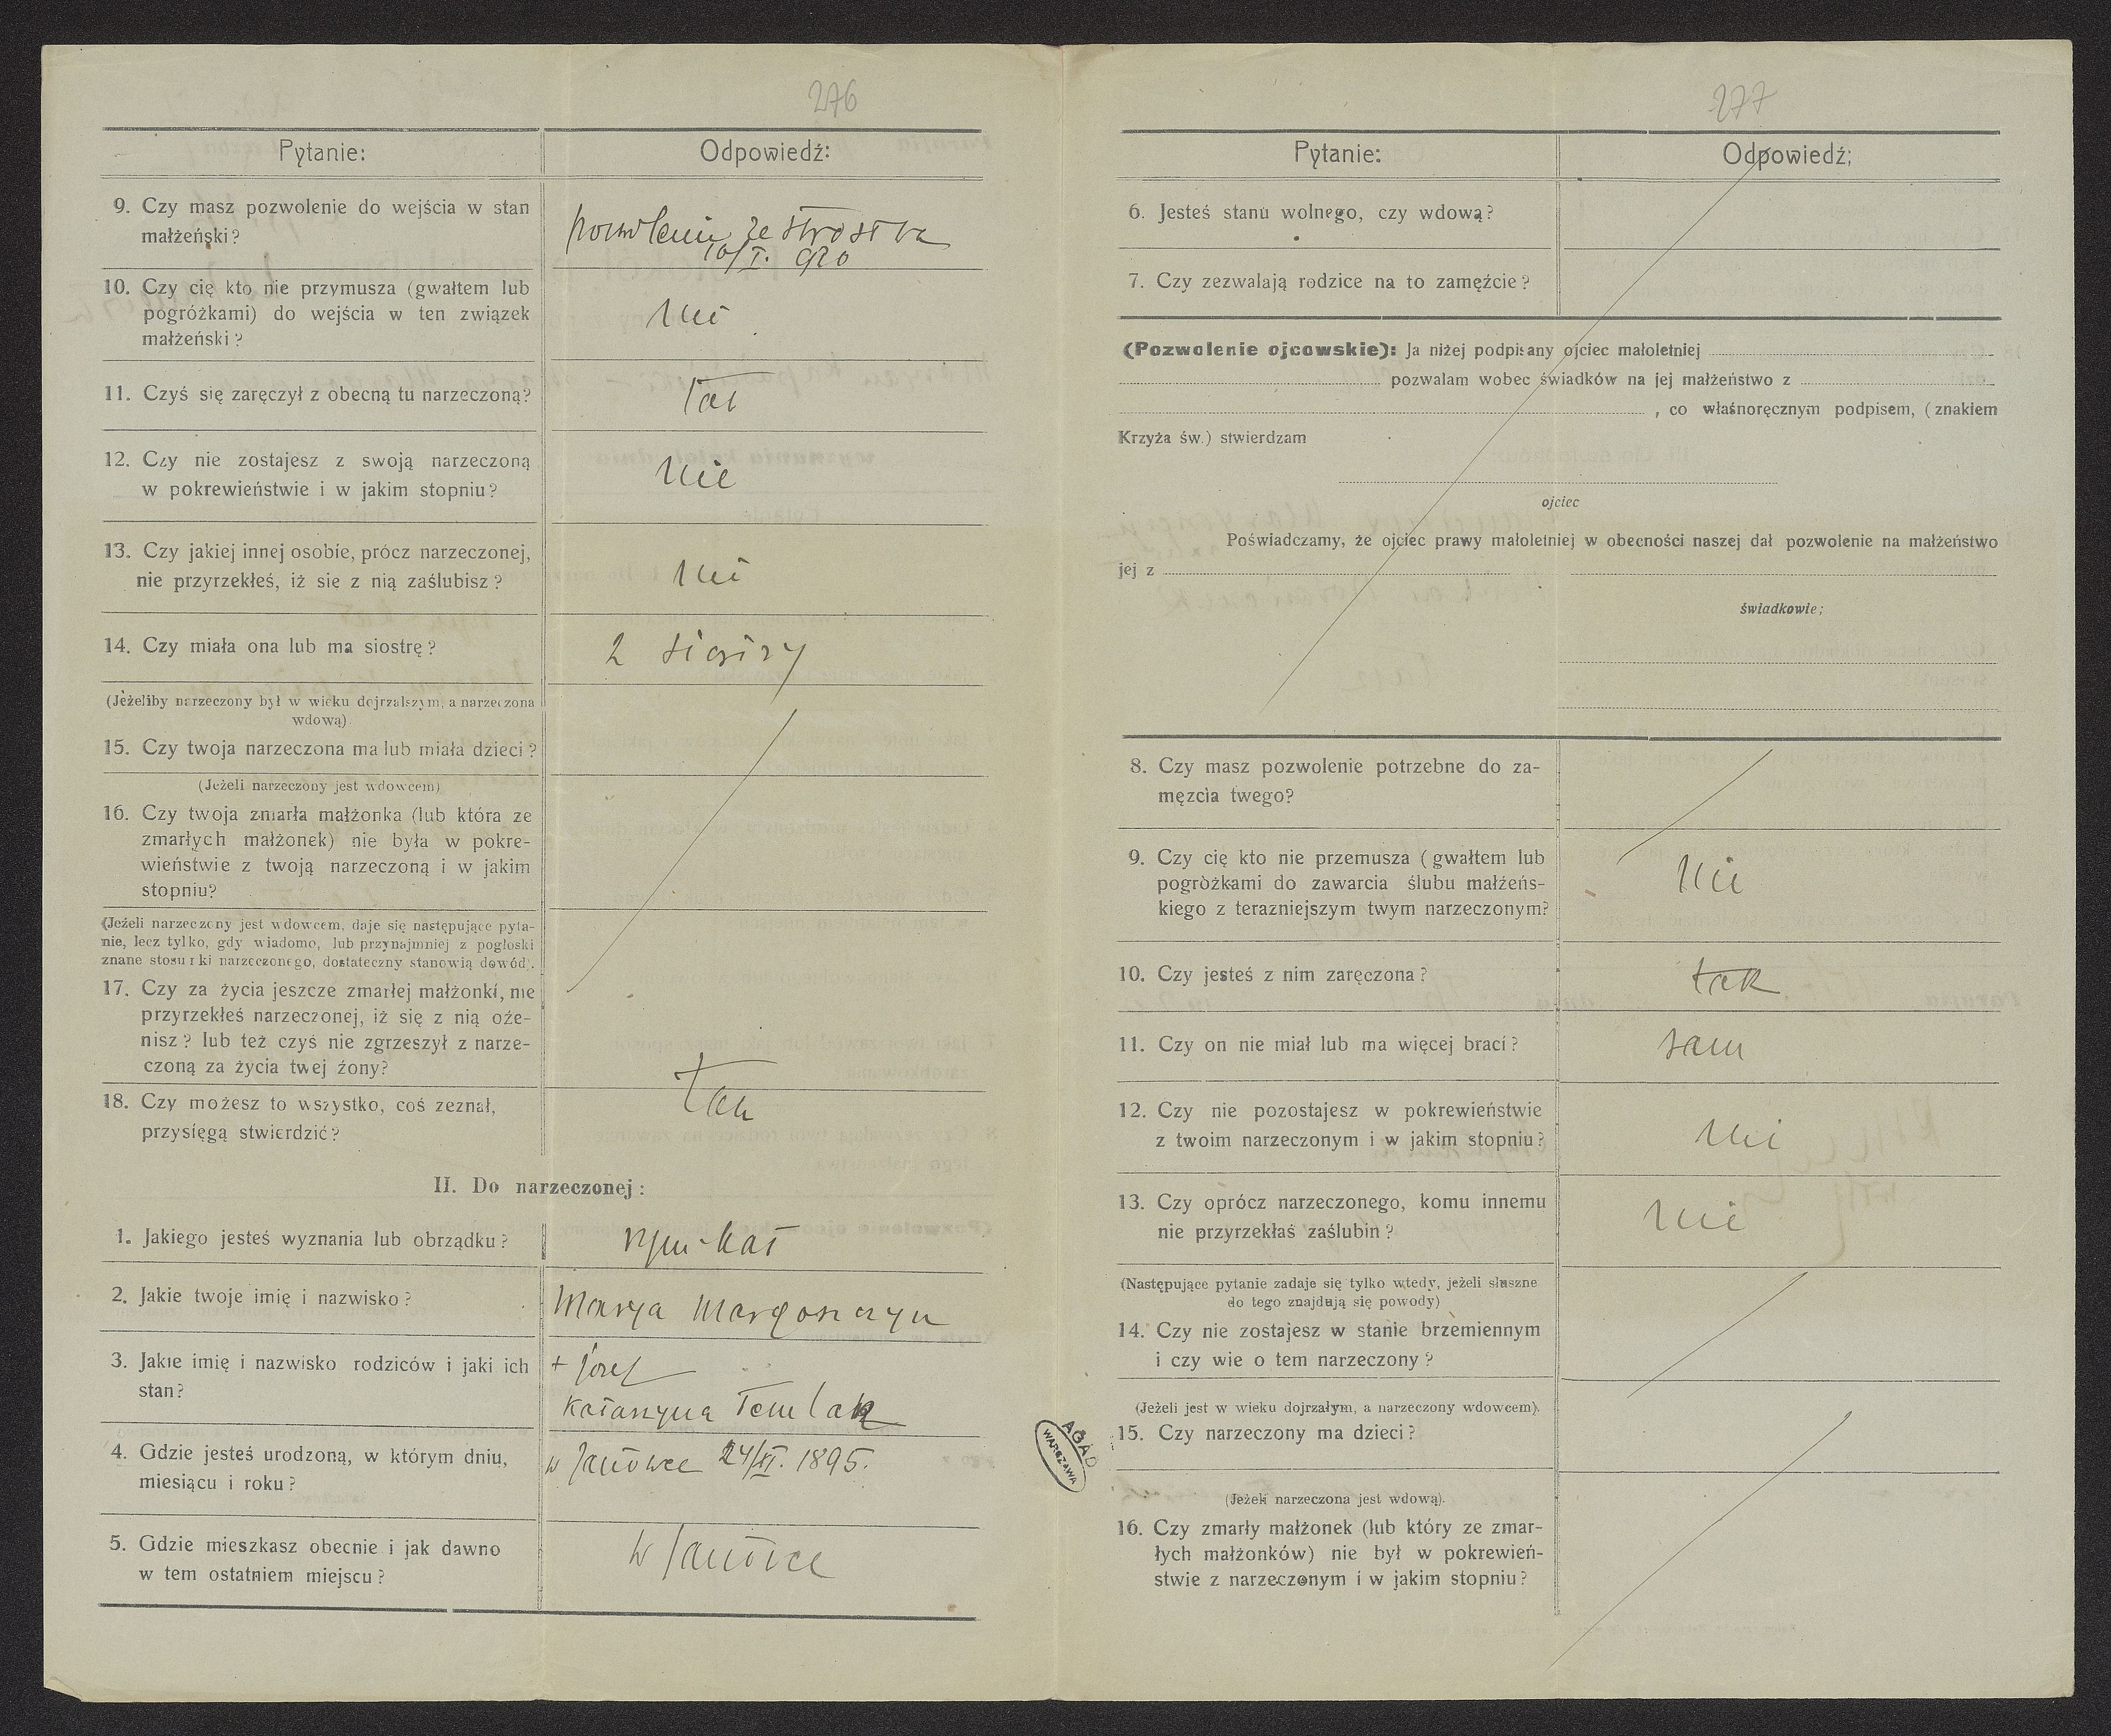 276
Pytanie:
Odpowiedź:
9. Czy masz pozwolenie do wejścia w stan
małżeński?
pozwolenie ze strostwa
10/I. 920
10. Czy cię kto nie przymusza (gwałtem lub
pogróżkami) do wejścia w ten związek
małżeński?
nie
11. Czyś się zaręczył z obecną tu narzeczoną?
tak
12. Czy nie zostajesz z swoją narzeczoną
w pokrewieństwie i w jakim stopniu?
nie
13. Czy jakiej innej osobie, prócz narzeczonej,
nie przyrzekłeś, iż się z nią zaślubisz?
nie
14. Czy miała ona lub ma siostrę?
2 siostry
(Jeżeliby narzeczony był w wieku dojrzalszym, a narzeczona
wdową)
15. Czy twoja narzeczona ma lub miała dzieci?
(Jeżeli narzeczony jest wdowcem)
16. Czy twoja zmarła małżonka (lub która ze
zmarłych małżonek) nie była w pokre-
wieństwie z twoją narzeczoną i w jakim
stopniu?
(Jeżeli narzeczony jest wdowcem, daje się następujące pyta-
nie, lecz tylko, gdy wiadomo, lub przynajmniej z pogłoski
znane stosunki narzeczonego, dostateczny stanowią dowód).
17. Czy za życia jeszcze zmarłej małżonki, nie
przyrzekłeś narzeczonej, iż się z nią oże-
nisz? lub też czyś nie zgrzeszył z narze-
czoną za życia twej żony?
18. Czy możesz to wszystko, coś zeznał,
przysięgą stwierdzić?
tak
II. Do narzeczonej:
1. Jakiego jesteś wyznania lub obrządku?
rzym-kat
2. Jakie twoje imię i nazwisko?
Marya Margoszczyn
3. Jakie imię i nazwisko rodziców i jaki ich
stan?
+ Józef
Katarzyna Temlak
4. Gdzie jesteś urodzoną, w którym dniu,
miesiącu i roku?
w Janówce 24/XI. 1895.
5. Gdzie mieszkasz obecnie i jak dawno
w tem ostatniem miejscu?
w Janówce
277
Pytanie:
Odpowiedź;
6. Jesteś stanu wolnego, czy wdową?
7. Czy zezwalają rodzice na to zamęźcie?
(Pozwolenie ojcowskie): Ja niżej podpisany ojciec małoletniej
pozwalam wobec świadków na jej małżeństwo z
, co własnoręcznym podpisem, (znakiem
Krzyża św.) stwierdzam
ojciec
Poświadczamy, że ojciec prawy małoletniej w obecności naszej dał pozwolenie na małżeństwo
jej z
świadkowie;
8. Czy masz pozwolenie potrzebne do za-
męzcia twego?
9. Czy cię kto nie przemusza (gwałtem lub
pogróżkami do zawarcia ślubu małżeńs-
kiego z terazniejszym twym narzeczonym?
nie
10. Czy jesteś z nim zaręczona?
tak
11. Czy on nie miał lub ma więcej braci?
sam
12. Czy nie pozostajesz w pokrewieństwie
z twoim narzeczonym i w jakim stopniu?
nie
13. Czy oprócz narzeczonego, komu innemu
nie przyrzekłaś zaślubin?
nie
(Następujące pytanie zadaje się tylko wtedy, jeżeli słuszne
do tego znajdują się powody)
14. Czy nie zostajesz w stanie brzemiennym
i czy wie o tem narzeczony?
(Jeżeli jest w wieku dojrzałym, a narzeczony wdowcem).
15. Czy narzeczony ma dzieci?
(Jeżeli narzeczona jest wdową).
16. Czy zmarły małżonek (lub który ze zmar-
łych małżonków) nie był w pokrewień-
stwie z narzeczonym i w jakim stopniu?
AGAD
WARSZAWA